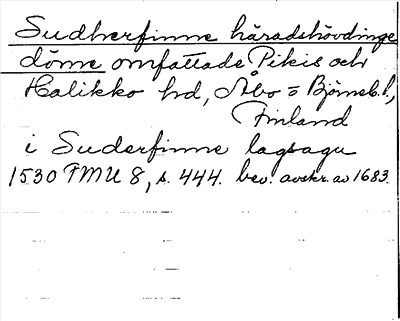 Sudherfinne häradshövdinge
döme omfattade Pikis och
Halikko hd, Åbo = Björneb. l.,
Finland
i Suderfinne lagsagu
1530 FMU 8, s. 444. bev. avskr. av 1683.